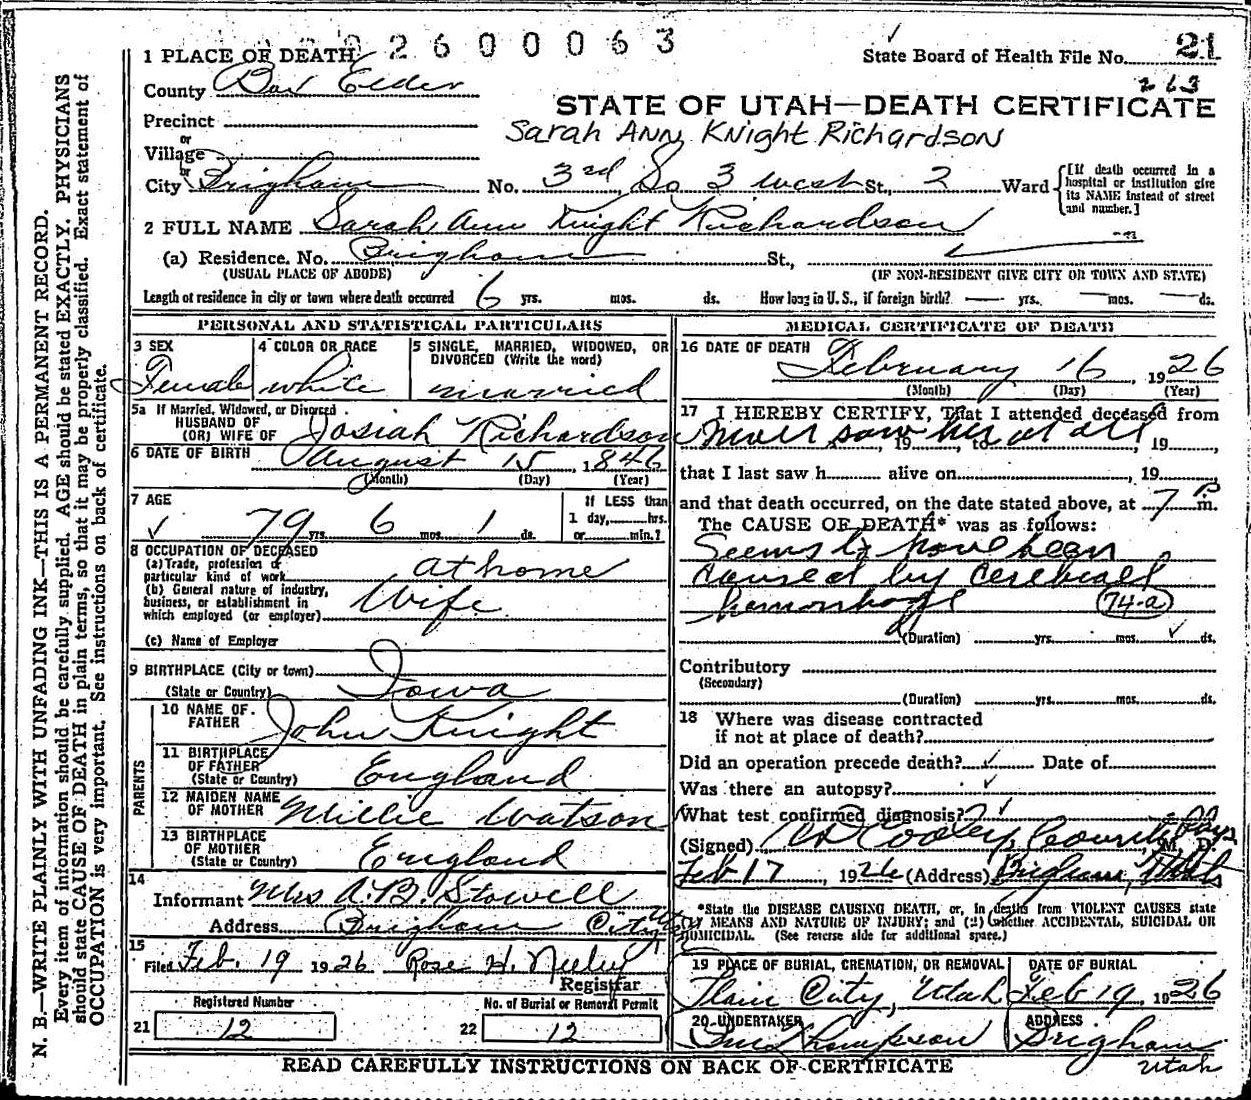 2600063
1 PLACE OF DEATH
State Board of Health File No. 21
263
County Box Elder
STATE OF UTAH—DEATH CERTIFICATE
Precinct
Sarah Ann Knight Richardson
or
Village
or
City Brigham No. 3rd So 3 West St., 2 Ward
[If death occurred in a hospital or institution give its NAME instead of street and number.]
2 FULL NAME Sarah Ann Knight Richardson
(a) Residence. No. Brigham St.,
(USUAL PLACE OF ABODE) (IF NON-RESIDENT GIVE CITY OR TOWN AND STATE)
Length of residence in city or town where death occurred 6 yrs. mos. ds. How long in U. S., if foreign birth? — yrs. — mos. — ds.
PERSONAL AND STATISTICAL PARTICULARS
3 SEX
Female
4 COLOR OR RACE
white
5 SINGLE, MARRIED, WIDOWED, OR
DIVORCED (Write the word)
married
5a If Married, Widowed, or Divorced
HUSBAND OF
(OR) WIFE OF Josiah Richardson
6 DATE OF BIRTH August 15, 1846
(Month) (Day) (Year)
7 AGE
79 yrs. 6 mos. 1 ds.
If LESS than
1 day, hrs.
or min.?
8 OCCUPATION OF DECEASED
(a) Trade, profession or
particular kind of work at home
(b) General nature of industry,
business, or establishment in
which employed (or employer) Wife
(c) Name of Employer
9 BIRTHPLACE (City or town)
(State or Country) Iowa
PARENTS
10 NAME OF
FATHER John Knight
11 BIRTHPLACE
OF FATHER
(State or Country) England
12 MAIDEN NAME
OF MOTHER Millie Watson
13 BIRTHPLACE
OF MOTHER
(State or Country) England
14
Informant Mrs A. B. Stowell
Address Brigham City Utah
15
Filed Feb. 19 1926 Rose H. Neeley
Registrar
Registered Number
21 12
No. of Burial or Removal Permit
22 12
MEDICAL CERTIFICATE OF DEATH
16 DATE OF DEATH
February 16, 1926
(Month) (Day) (Year)
17 I HEREBY CERTIFY, That I attended deceased from
Never saw her at all 19 , to 19
that I last saw h alive on , 19
and that death occurred, on the date stated above, at 7 P m.
The CAUSE OF DEATH* was as follows:
Seems to have been
caused by cerebral
hemorrhage 74-a
(Duration) yrs. mos. ds.
Contributory
(Secondary)
(Duration) yrs. mos. ds.
18 Where was disease contracted
if not at place of death?
Did an operation precede death? Date of
Was there an autopsy?
What test confirmed diagnosis?
(Signed) Cooley, County Phys M. D.
Feb 17, 1926 (Address) Brigham, Utah
*State the DISEASE CAUSING DEATH, or, in deaths from VIOLENT CAUSES state
(1) MEANS AND NATURE OF INJURY; and (2) whether ACCIDENTAL, SUICIDAL OR
HOMICIDAL. (See reverse side for additional space.)
19 PLACE OF BURIAL, CREMATION, OR REMOVAL
Plain City, Utah
DATE OF BURIAL
Feb 19, 1926
20 UNDERTAKER
Thompson
ADDRESS
Brigham
Utah
READ CAREFULLY INSTRUCTIONS ON BACK OF CERTIFICATE
N. B.—WRITE PLAINLY WITH UNFADING INK—THIS IS A PERMANENT RECORD.
Every item of information should be carefully supplied. AGE should be stated EXACTLY. PHYSICIANS
should state CAUSE OF DEATH in plain terms, so that it may be properly classified. Exact statement of
OCCUPATION is very important. See instructions on back of certificate.